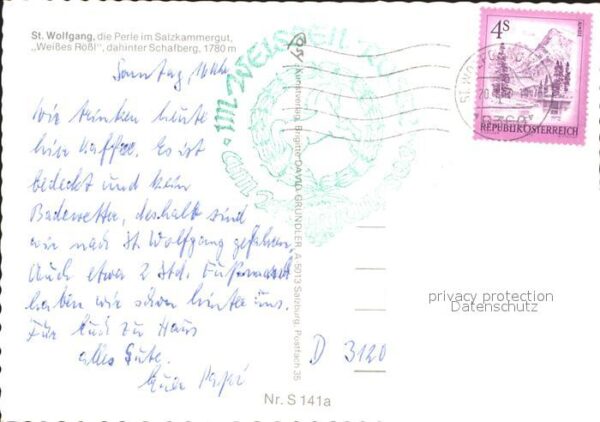 St. Wolfgang, die Perle im Salzkammergut,
„Weißes Rößl", dahinter Schafberg, 1780 m
Sonntag, 16 Uhr
Wir trinken heute
hier Kaffee. Es ist
bedeckt und kein
Badewetter, deshalb sind
wir nach St. Wolfgang gefahren.
Auch etwa 2 Std. Fußmarsch
haben wir schon hinter uns.
Für Euch zu Haus
alles Gute.
Euer
Kunstverlag Brigitte DAVID GRÜNDLER, A 5013 Salzburg, Postfach 35
Nr. S 141a
IM WEISSEN
AM
4S
REPUBLIK ÖSTERREICH
ST. WOLFGANG
5360
D 3120
privacy protection
Datenschutz